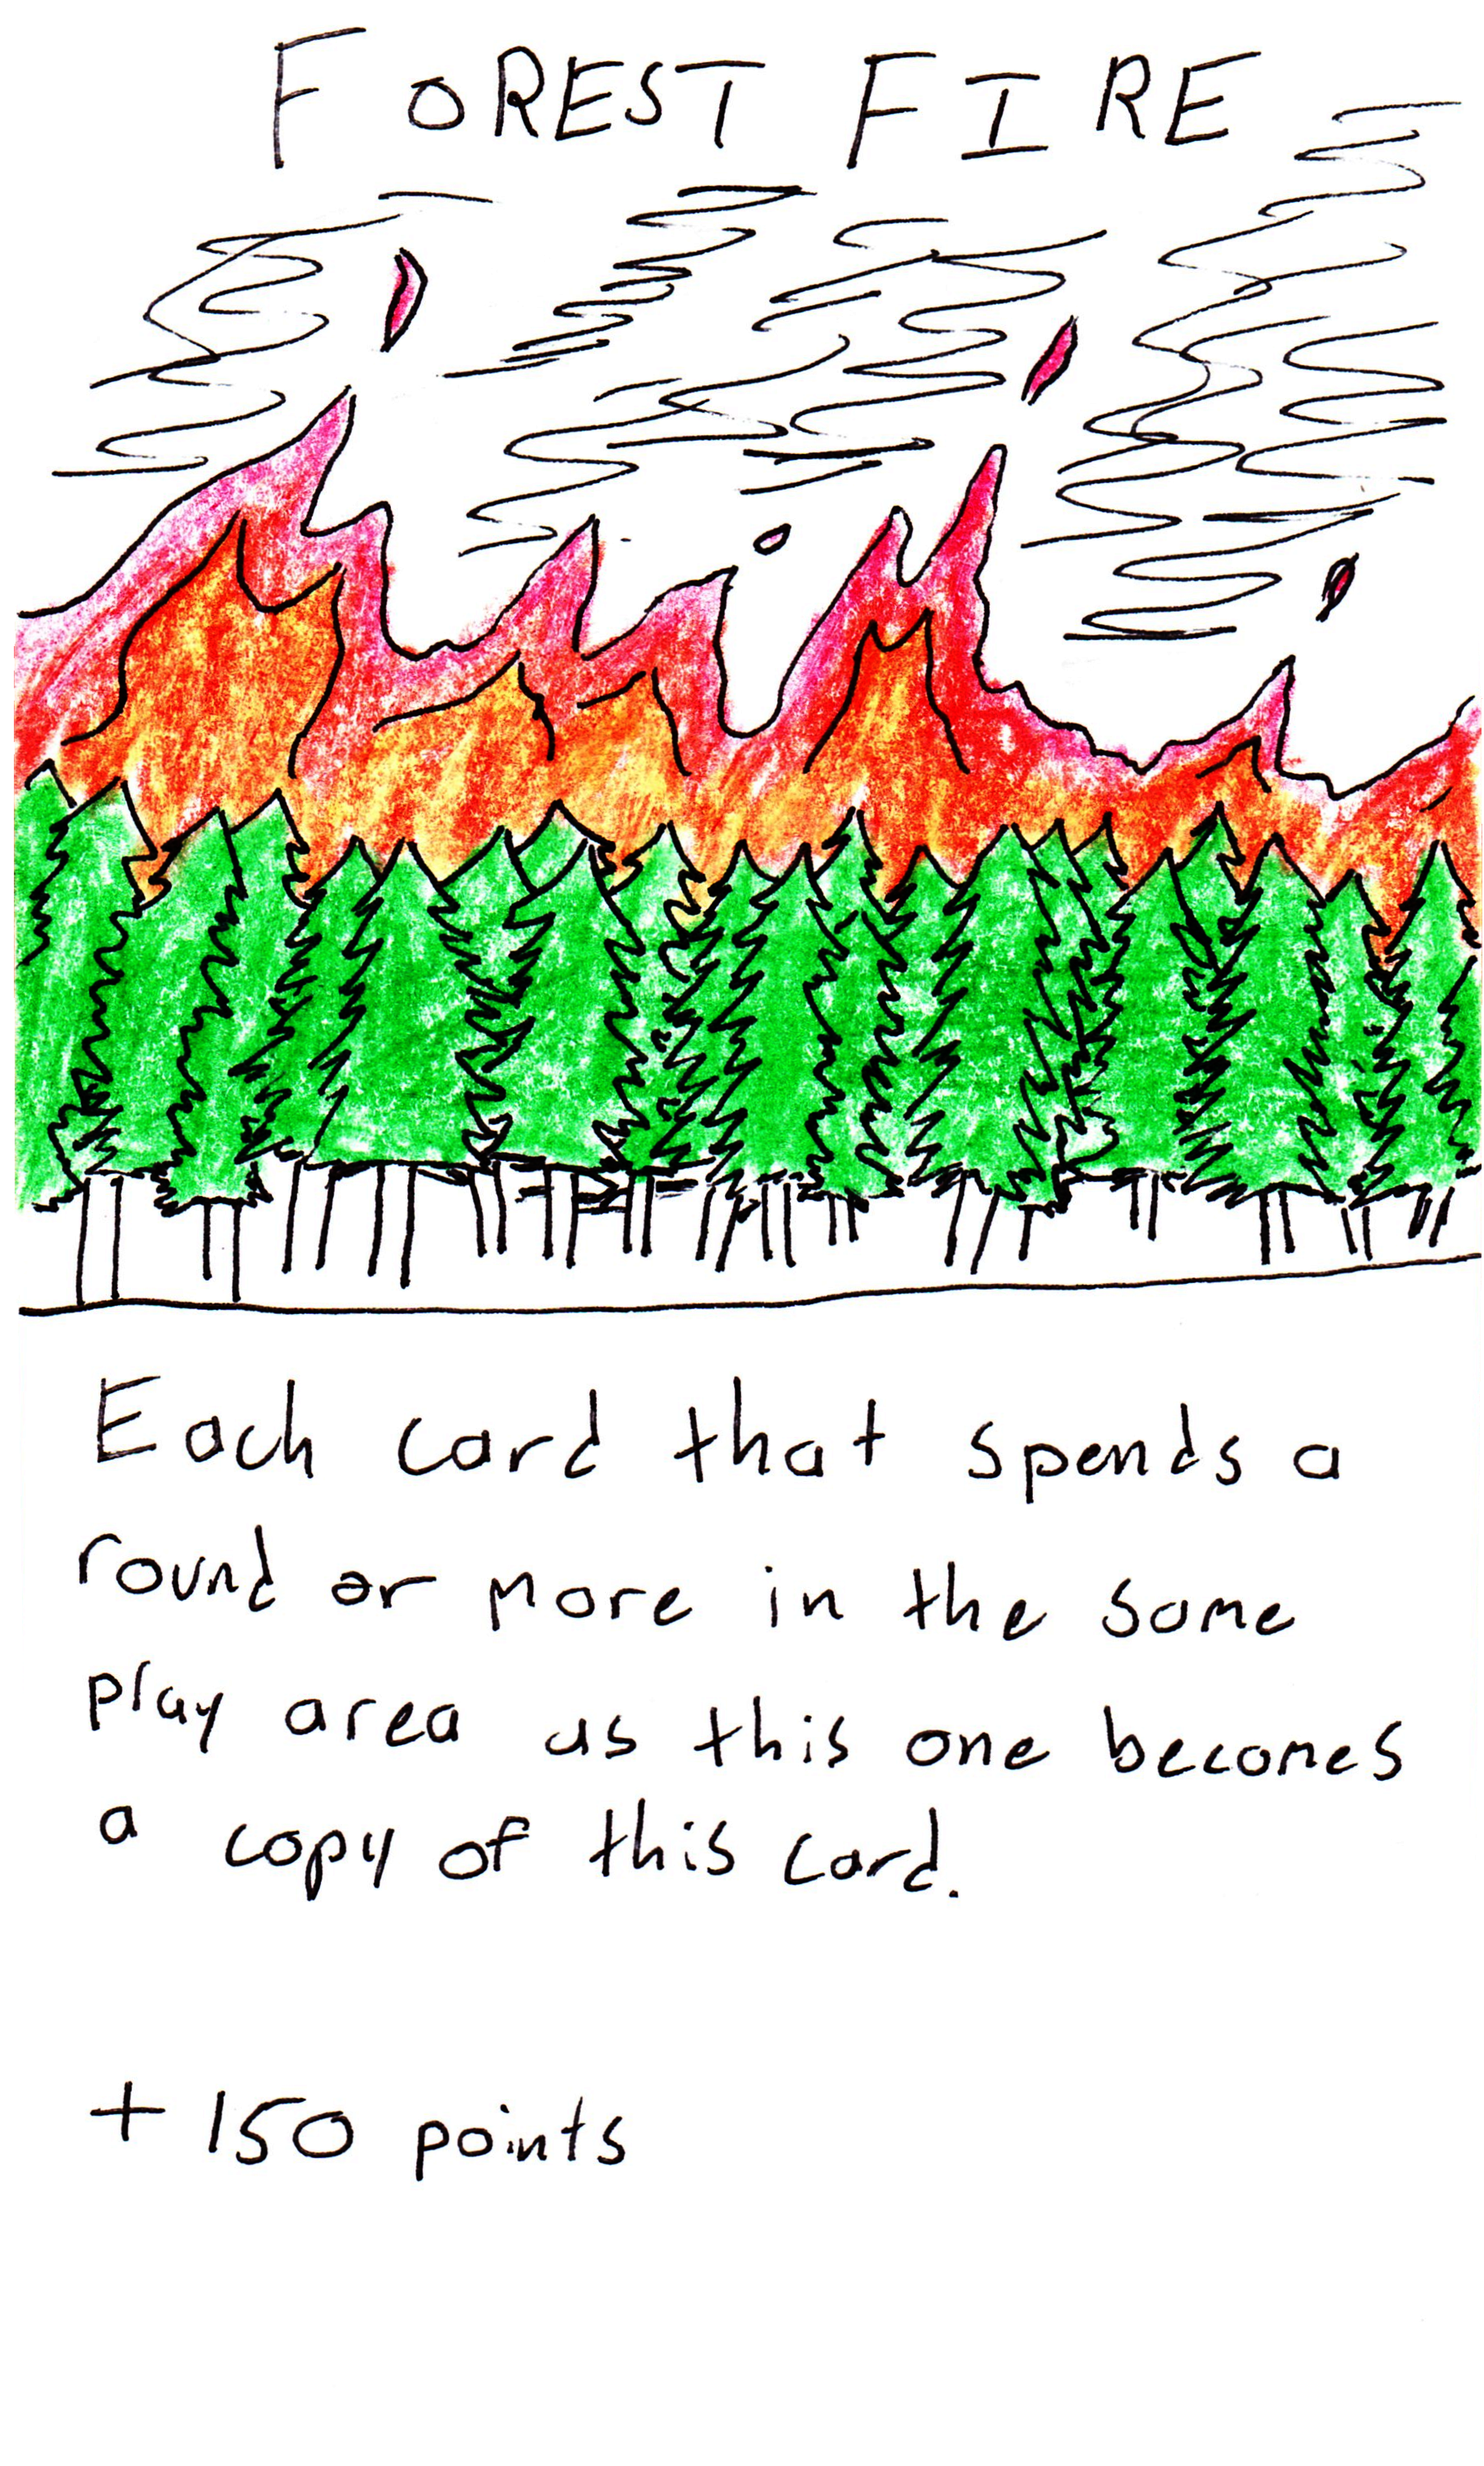 FOREST FIRE
Each card that spends a
round or more in the same
play area as this one becomes
a copy of this card.
+150 points